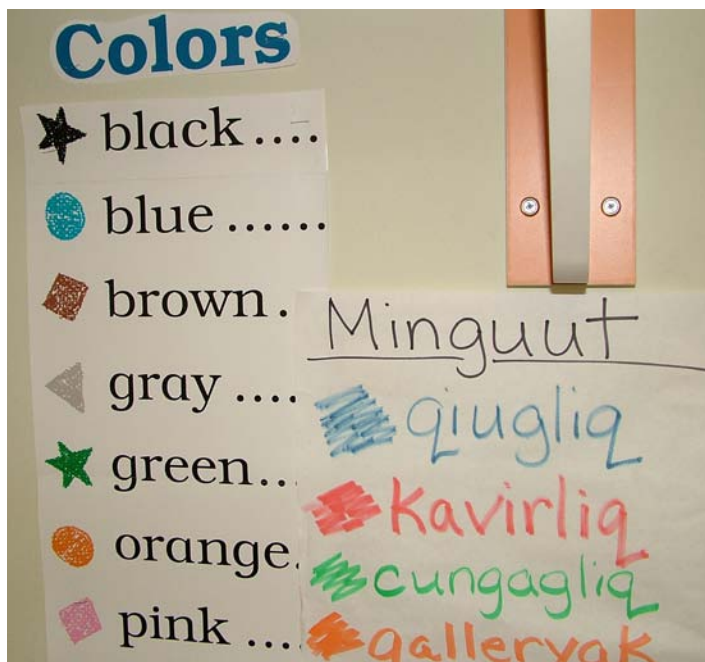 Colors
black ....
blue ......
brown .
gray ....
green...
orange.
pink ....
Minguut
qiugliq
Kavirliq
cungagliq
qalleryak